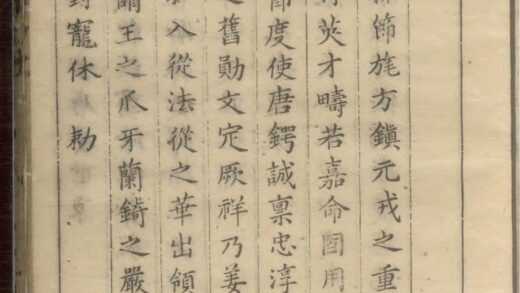 節旄方鎮元戎之重
英才疇若嘉命圖用
度使唐鍔誠禀忠淳
之舊勛文定厥祥乃姜
入從法從之華出領
王之爪牙蘭錡之嚴
寵休 勑